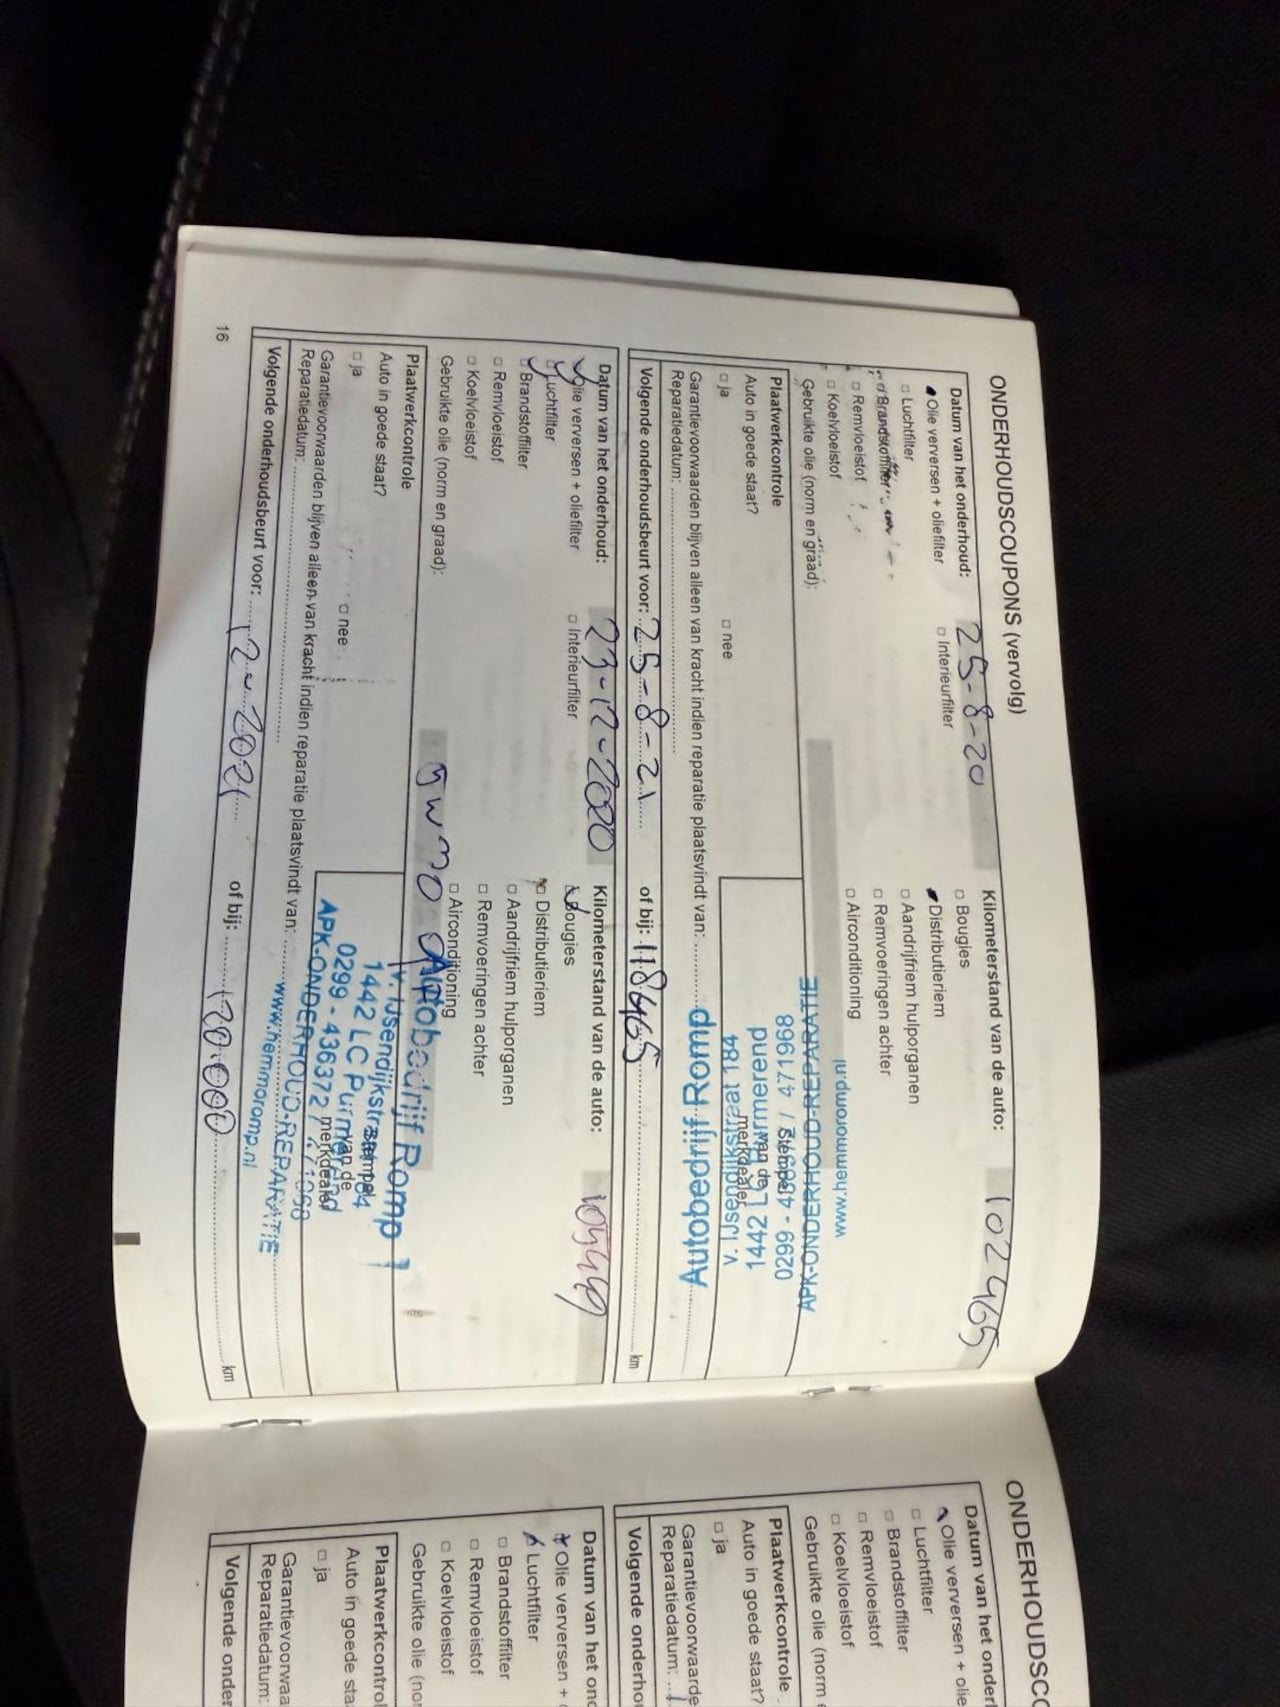 ONDERHOUDSCOUPONS (vervolg)
Datum van het onderhoud: 25-8-20 Kilometerstand van de auto: 102465
Olie verversen + oliefilter □ Interieurfilter □ Bougies
□ Luchtfilter Distributieriem
Brandstoffilter □ Aandrijfriem hulporganen
□ Remvloeistof □ Remvoeringen achter
□ Koelvloeistof □ Airconditioning
Gebruikte olie (norm en graad):
Plaatwerkcontrole
Auto in goede staat?
□ ja □ nee
Stempel
van de
merkdealer
Autobedrijf Romp
v. IJsendijkstraat 184
1442 LC Purmerend
0299 - 436372 / 471968
APK-ONDERHOUD-REPARATIE
www.hemmoromp.nl
Garantievoorwaarden blijven alleen van kracht indien reparatie plaatsvindt van:
Reparatiedatum:
Volgende onderhoudsbeurt voor: 25-8-21 of bij: 118465 km
Datum van het onderhoud: 23-12-2020 Kilometerstand van de auto:
Olie verversen + oliefilter □ Interieurfilter Bougies
Luchtfilter □ Distributieriem
Brandstoffilter □ Aandrijfriem hulporganen
□ Remvloeistof □ Remvoeringen achter
□ Koelvloeistof □ Airconditioning
Gebruikte olie (norm en graad):
Plaatwerkcontrole
Auto in goede staat?
□ ja □ nee
Stempel
van de
merkdealer
Autobedrijf Romp
v. IJsendijkstraat 184
1442 LC Purmerend
0299 - 436372 / 471968
APK-ONDERHOUD-REPARATIE
www.hemmoromp.nl
Garantievoorwaarden blijven alleen van kracht indien reparatie plaatsvindt van:
Reparatiedatum:
Volgende onderhoudsbeurt voor: 12-2021 of bij: km
16
ONDERHOUDSCO
Datum van het onder
Olie verversen + olie
□ Luchtfilter
□ Brandstoffilter
□ Remvloeistof
□ Koelvloeistof
Gebruikte olie (norm
Plaatwerkcontrole
Auto in goede staat?
□ ja
Garantievoorwaarde
Reparatiedatum:
Volgende onderhou
Datum van het ond
Olie verversen +
Luchtfilter
□ Brandstoffilter
□ Remvloeistof
□ Koelvloeistof
Gebruikte olie (nor
Plaatwerkcontrol
Auto in goede sta
□ ja
Garantievoorwaa
Reparatiedatum:
Volgende onder